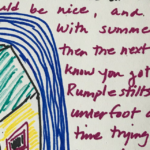 uld be nice, and
With summe
then the next
know you got
Rumplestilts
underfoot a
time trying